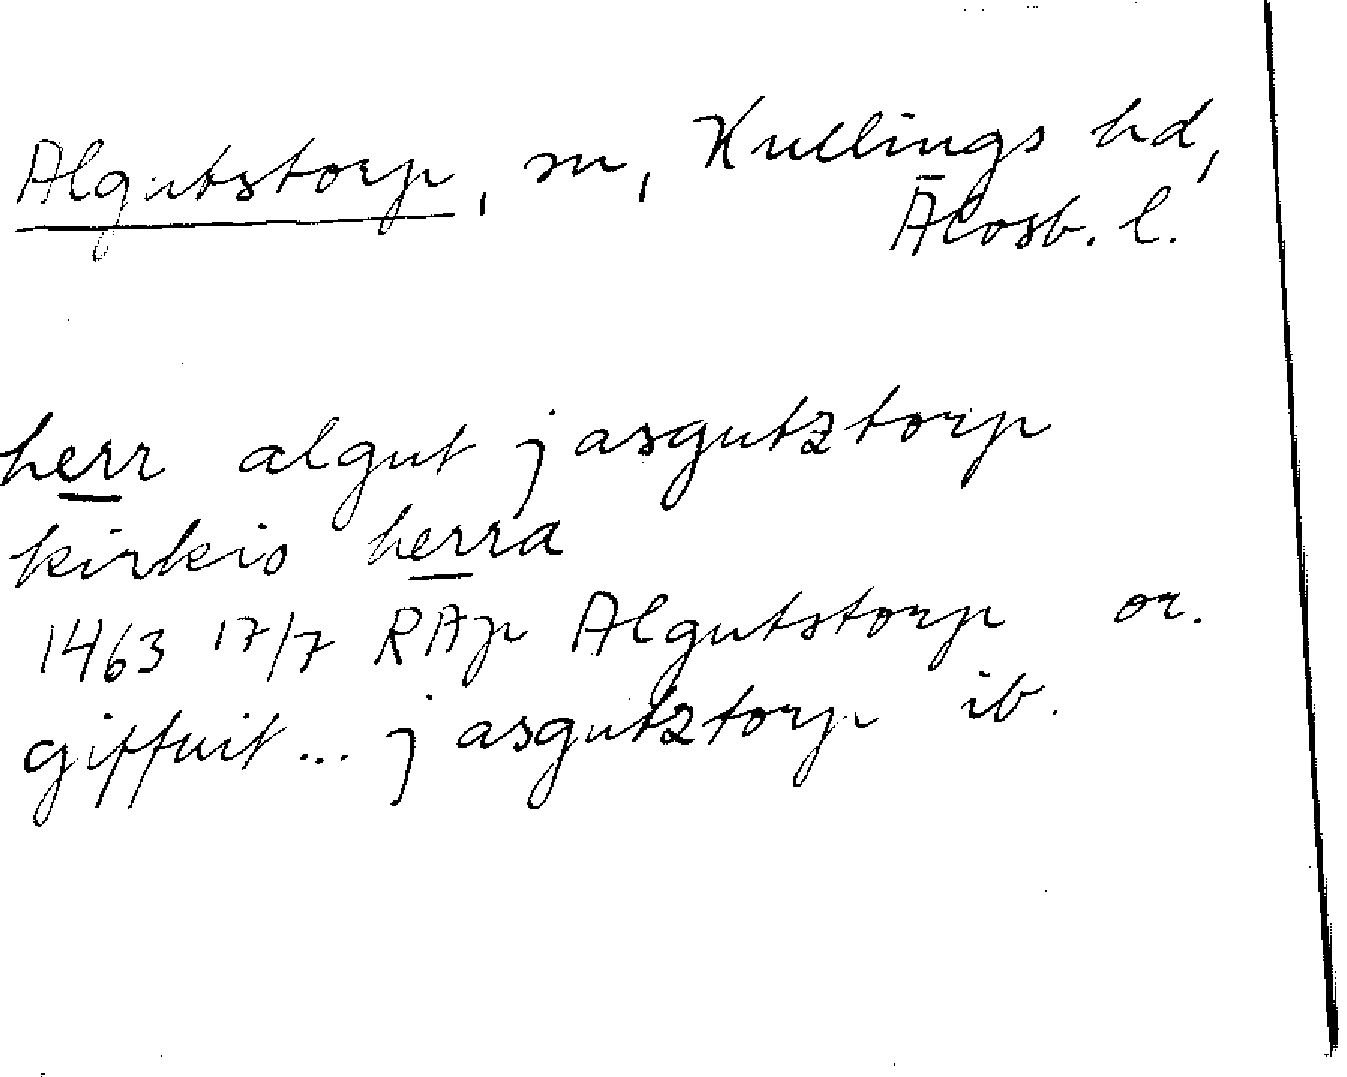 Algutstorp, sn, Kullings hd,
Älvsb. l.
herr algut j asgutztorp
kirkio herra
1463 17/7 RAp Algutstorp or.
giffuit... j asgutztorp ib.